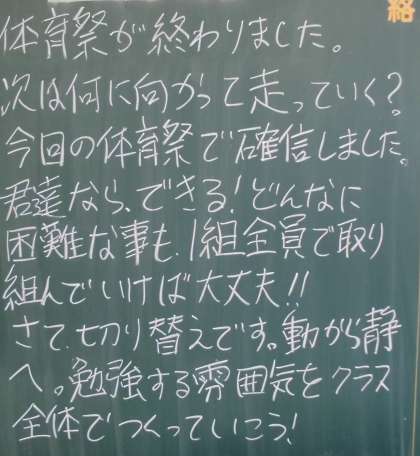 絡
体育祭が終わりました。
次は何に向かって走っていく?
今回の体育祭で確信しました。
君達なら、できる!どんなに
困難な事も、1組全員で取り
組んでいけば大丈夫!!
さて、切り替えです。動から静
へ。勉強する雰囲気をクラス
全体でつくっていこう!